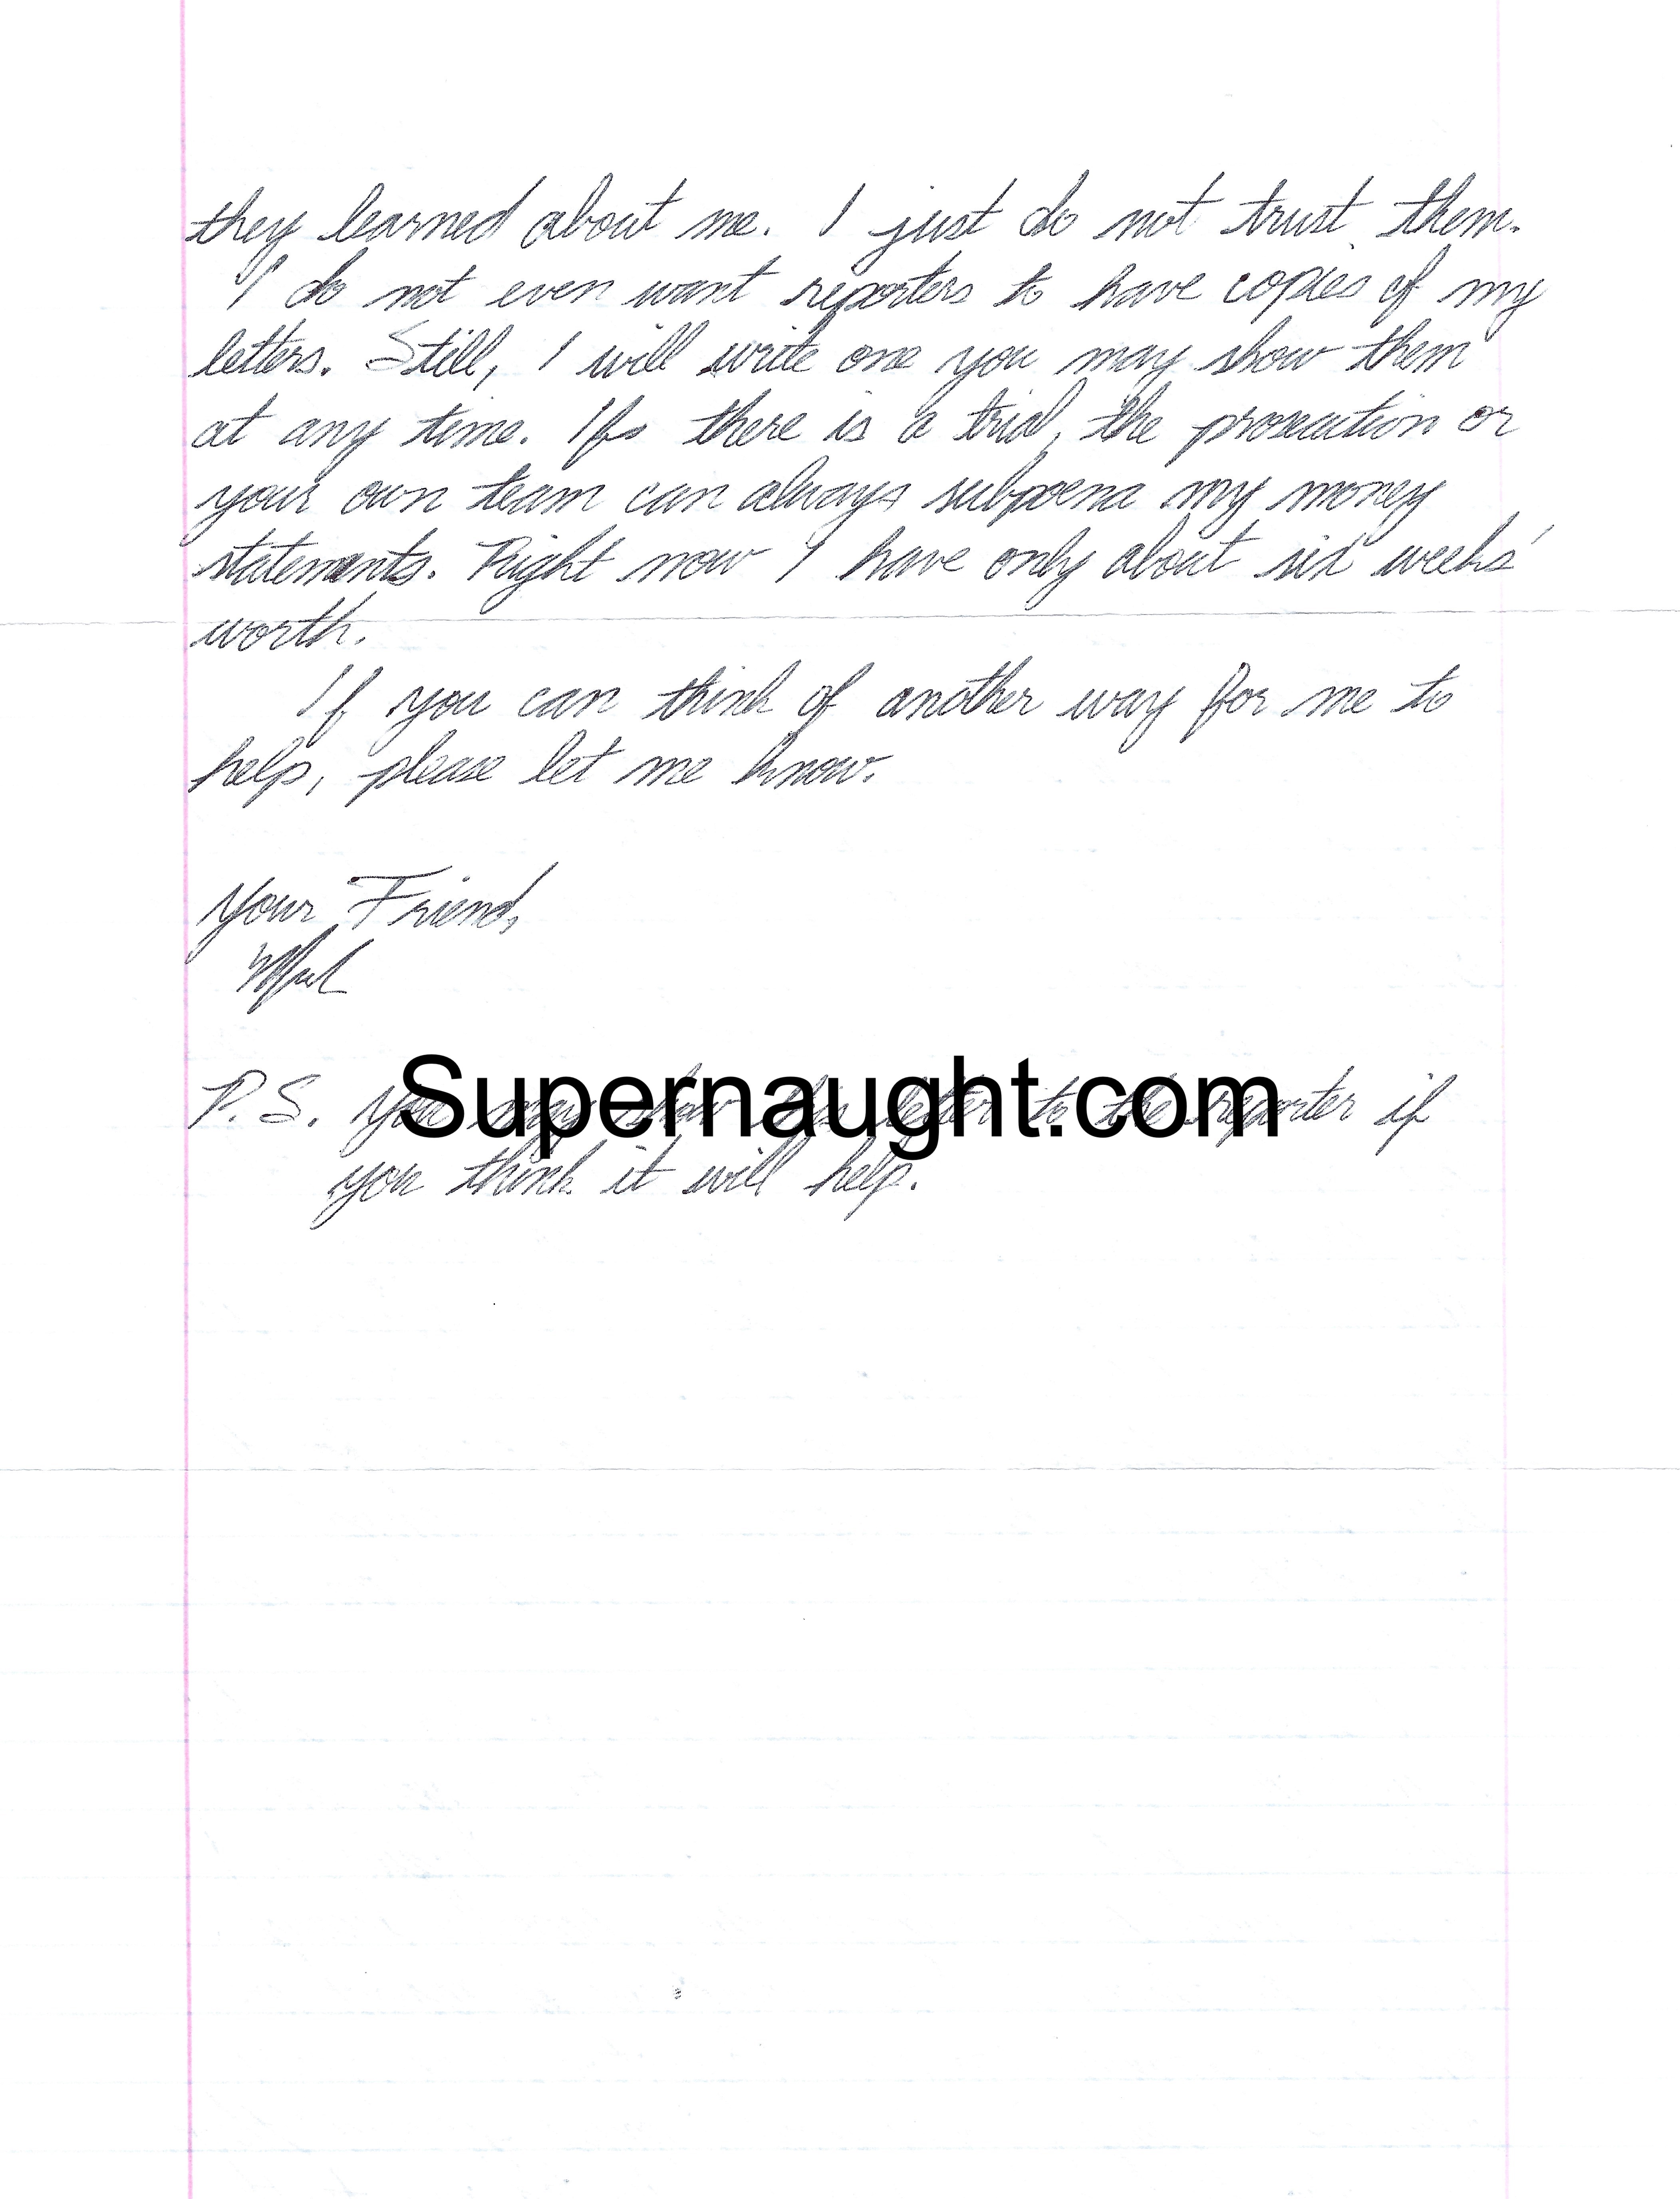 they learned about me. I just do not trust them.
I do not even want reporters to have copies of my
letters. Still, I will write one you may show them
at any time. Ifs there is a trial, the prosecution or
your own team can always subpoena my money
statements. Right now I have only about six weeks'
worth.
If you can think of another way for me to
help, please let me know.
Your Friend,
P.S. You may show this letter to the reporter if
Supernaught.com
you think it will help.